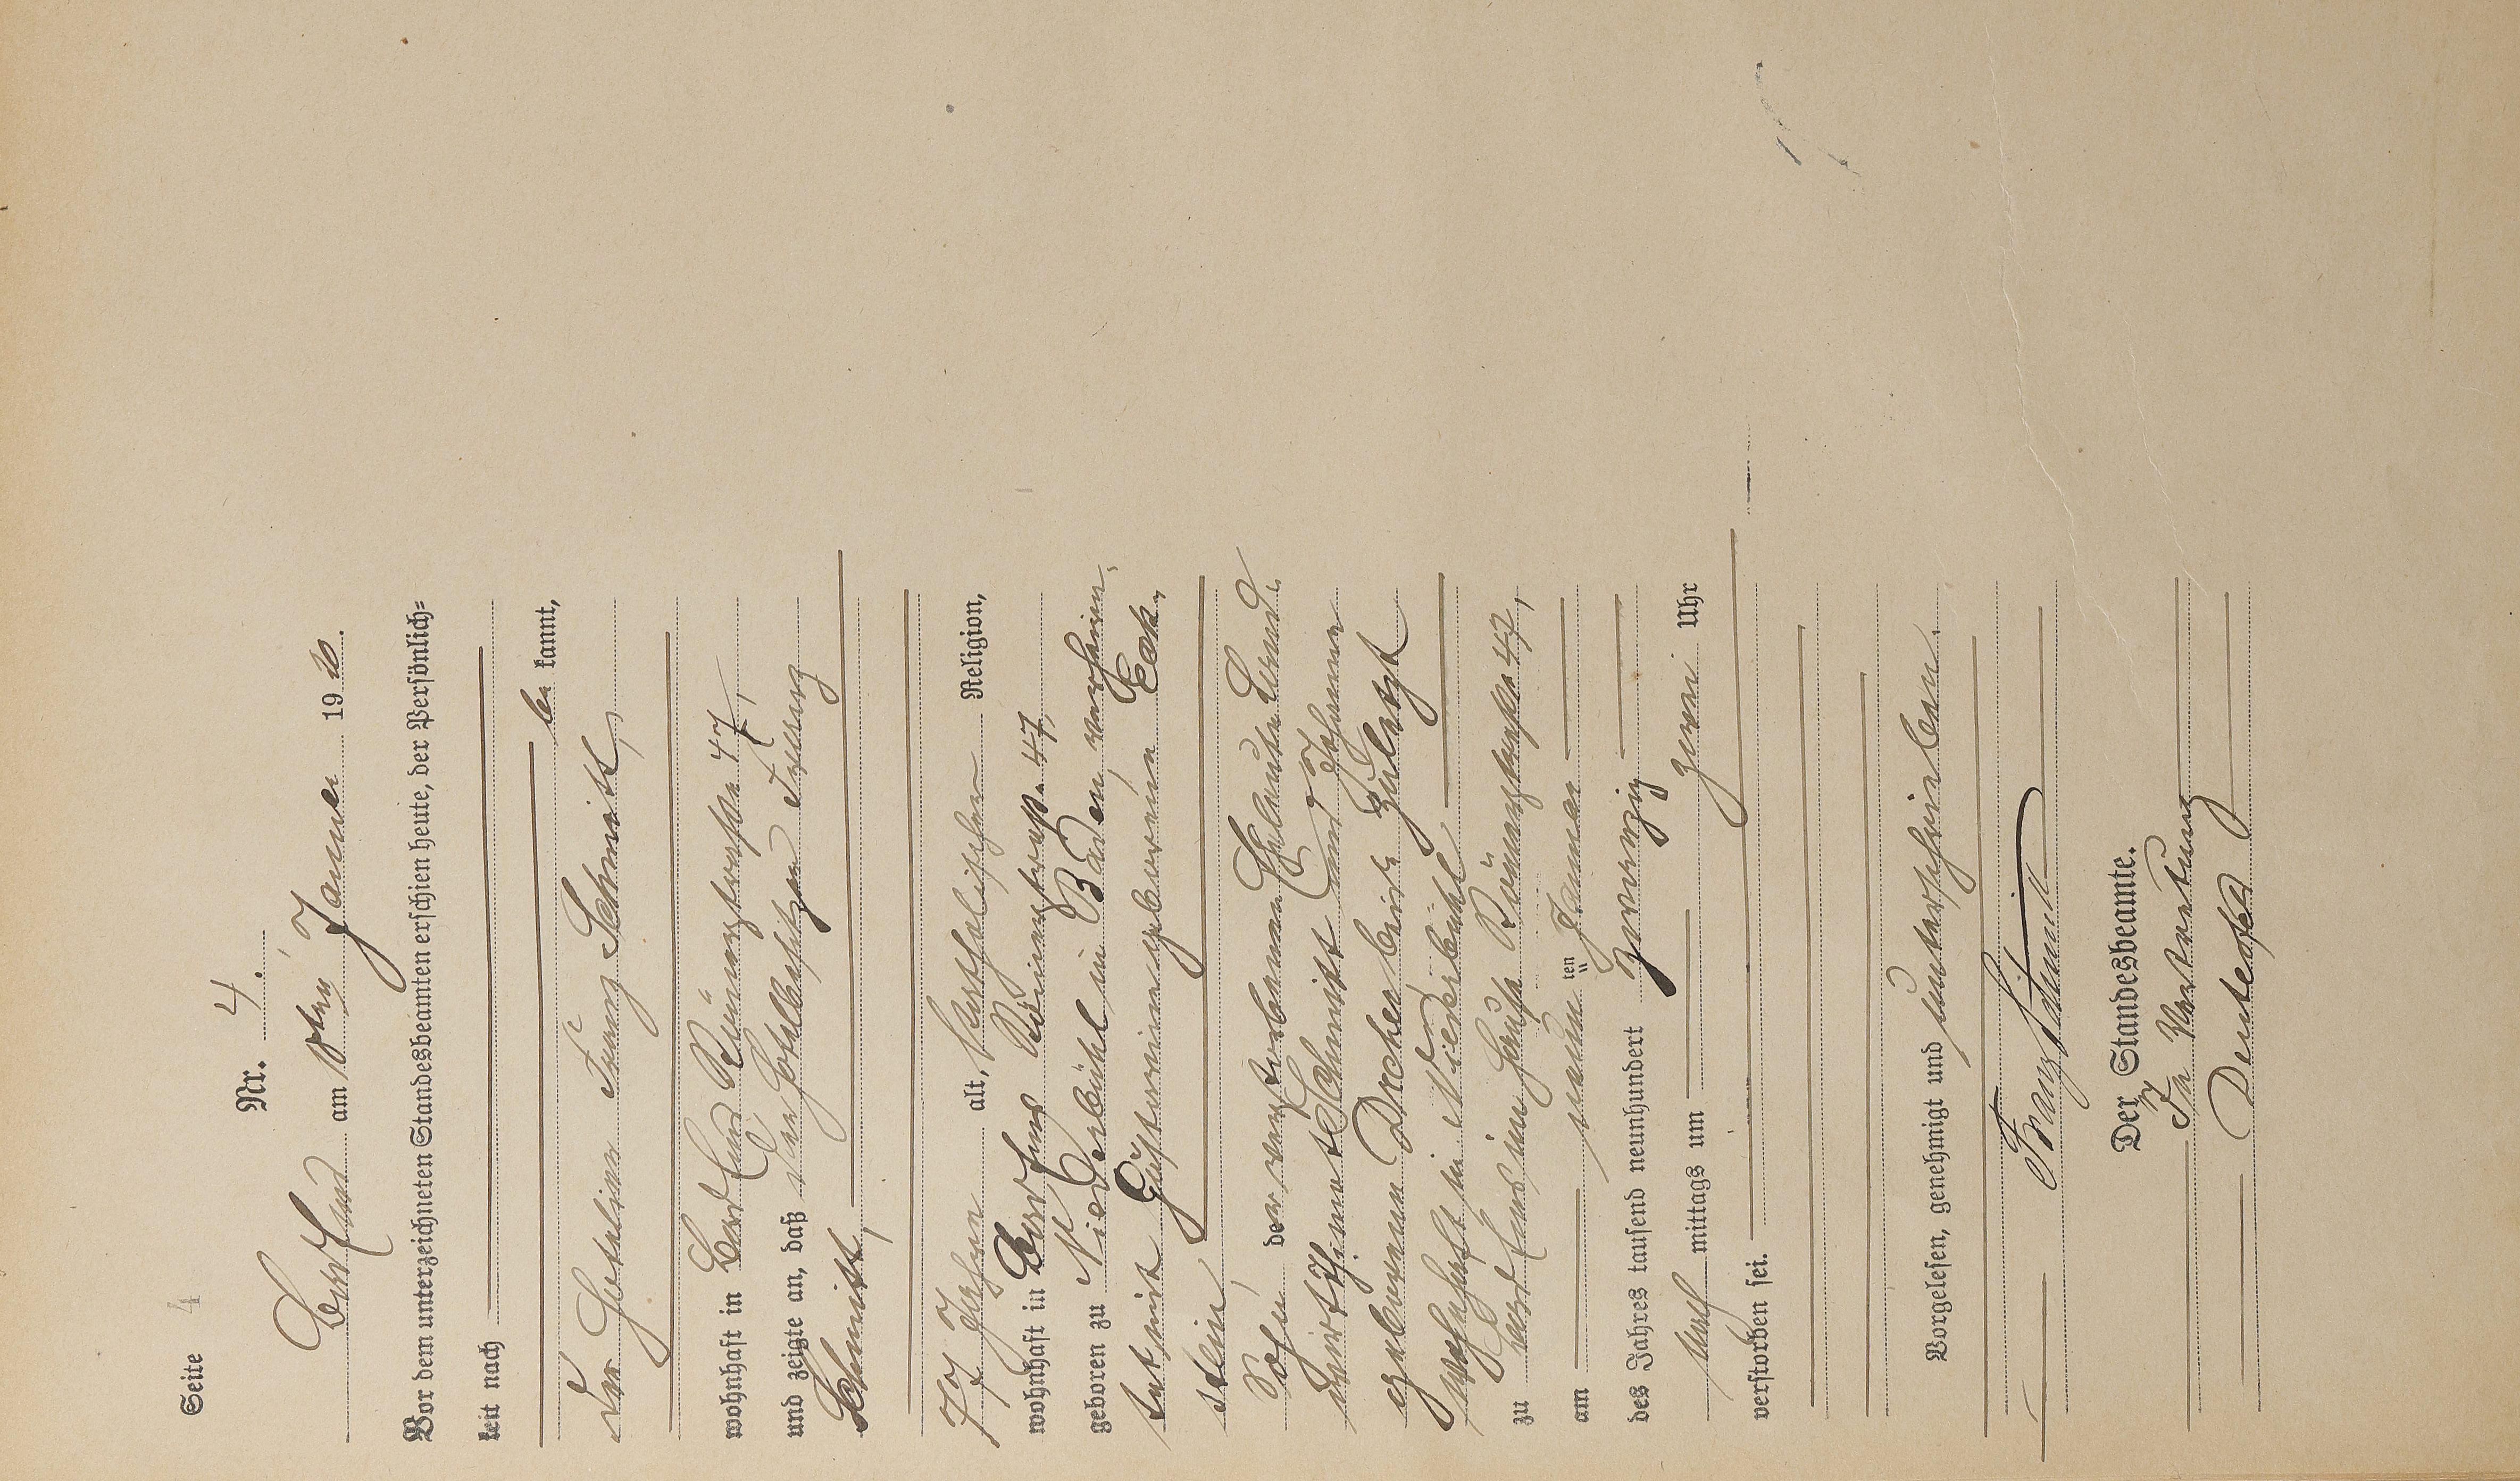 Seite 4
Nr. 4.
Bad Ems am 10ten Januar 1920.
Vor dem unterzeichneten Standesbeamten erschien heute, der Persönlich-
keit nach
be kannt,
der Hotelier Franz Schmitt,
wohnhaft in Bad Ems Römerstraße 47,
und zeigte an, daß der Hotelbesitzer Franz
Schmitt,
77 Jahre alt, katholischer Religion,
wohnhaft in Bad Ems Römerstraße 47,
geboren zu Niederbühl in Baden, verheira-
tet mit geborene Eck-
stein,
Sohn der verstorbenen Eheleute Land-
wirt Schmitt und Johanna
geborenen Drecher beide zuletzt
wohnhaft in Niederbühl
zu Bad Ems im Hause Römerstraße 47,
am neun ten Januar
des Jahres tausend neunhundert zwanzig
nach mittags um zwei Uhr
verstorben sei.
Vorgelesen, genehmigt und unterschrieben.
Franz Schmitt
Der Standesbeamte.
In Vertretung